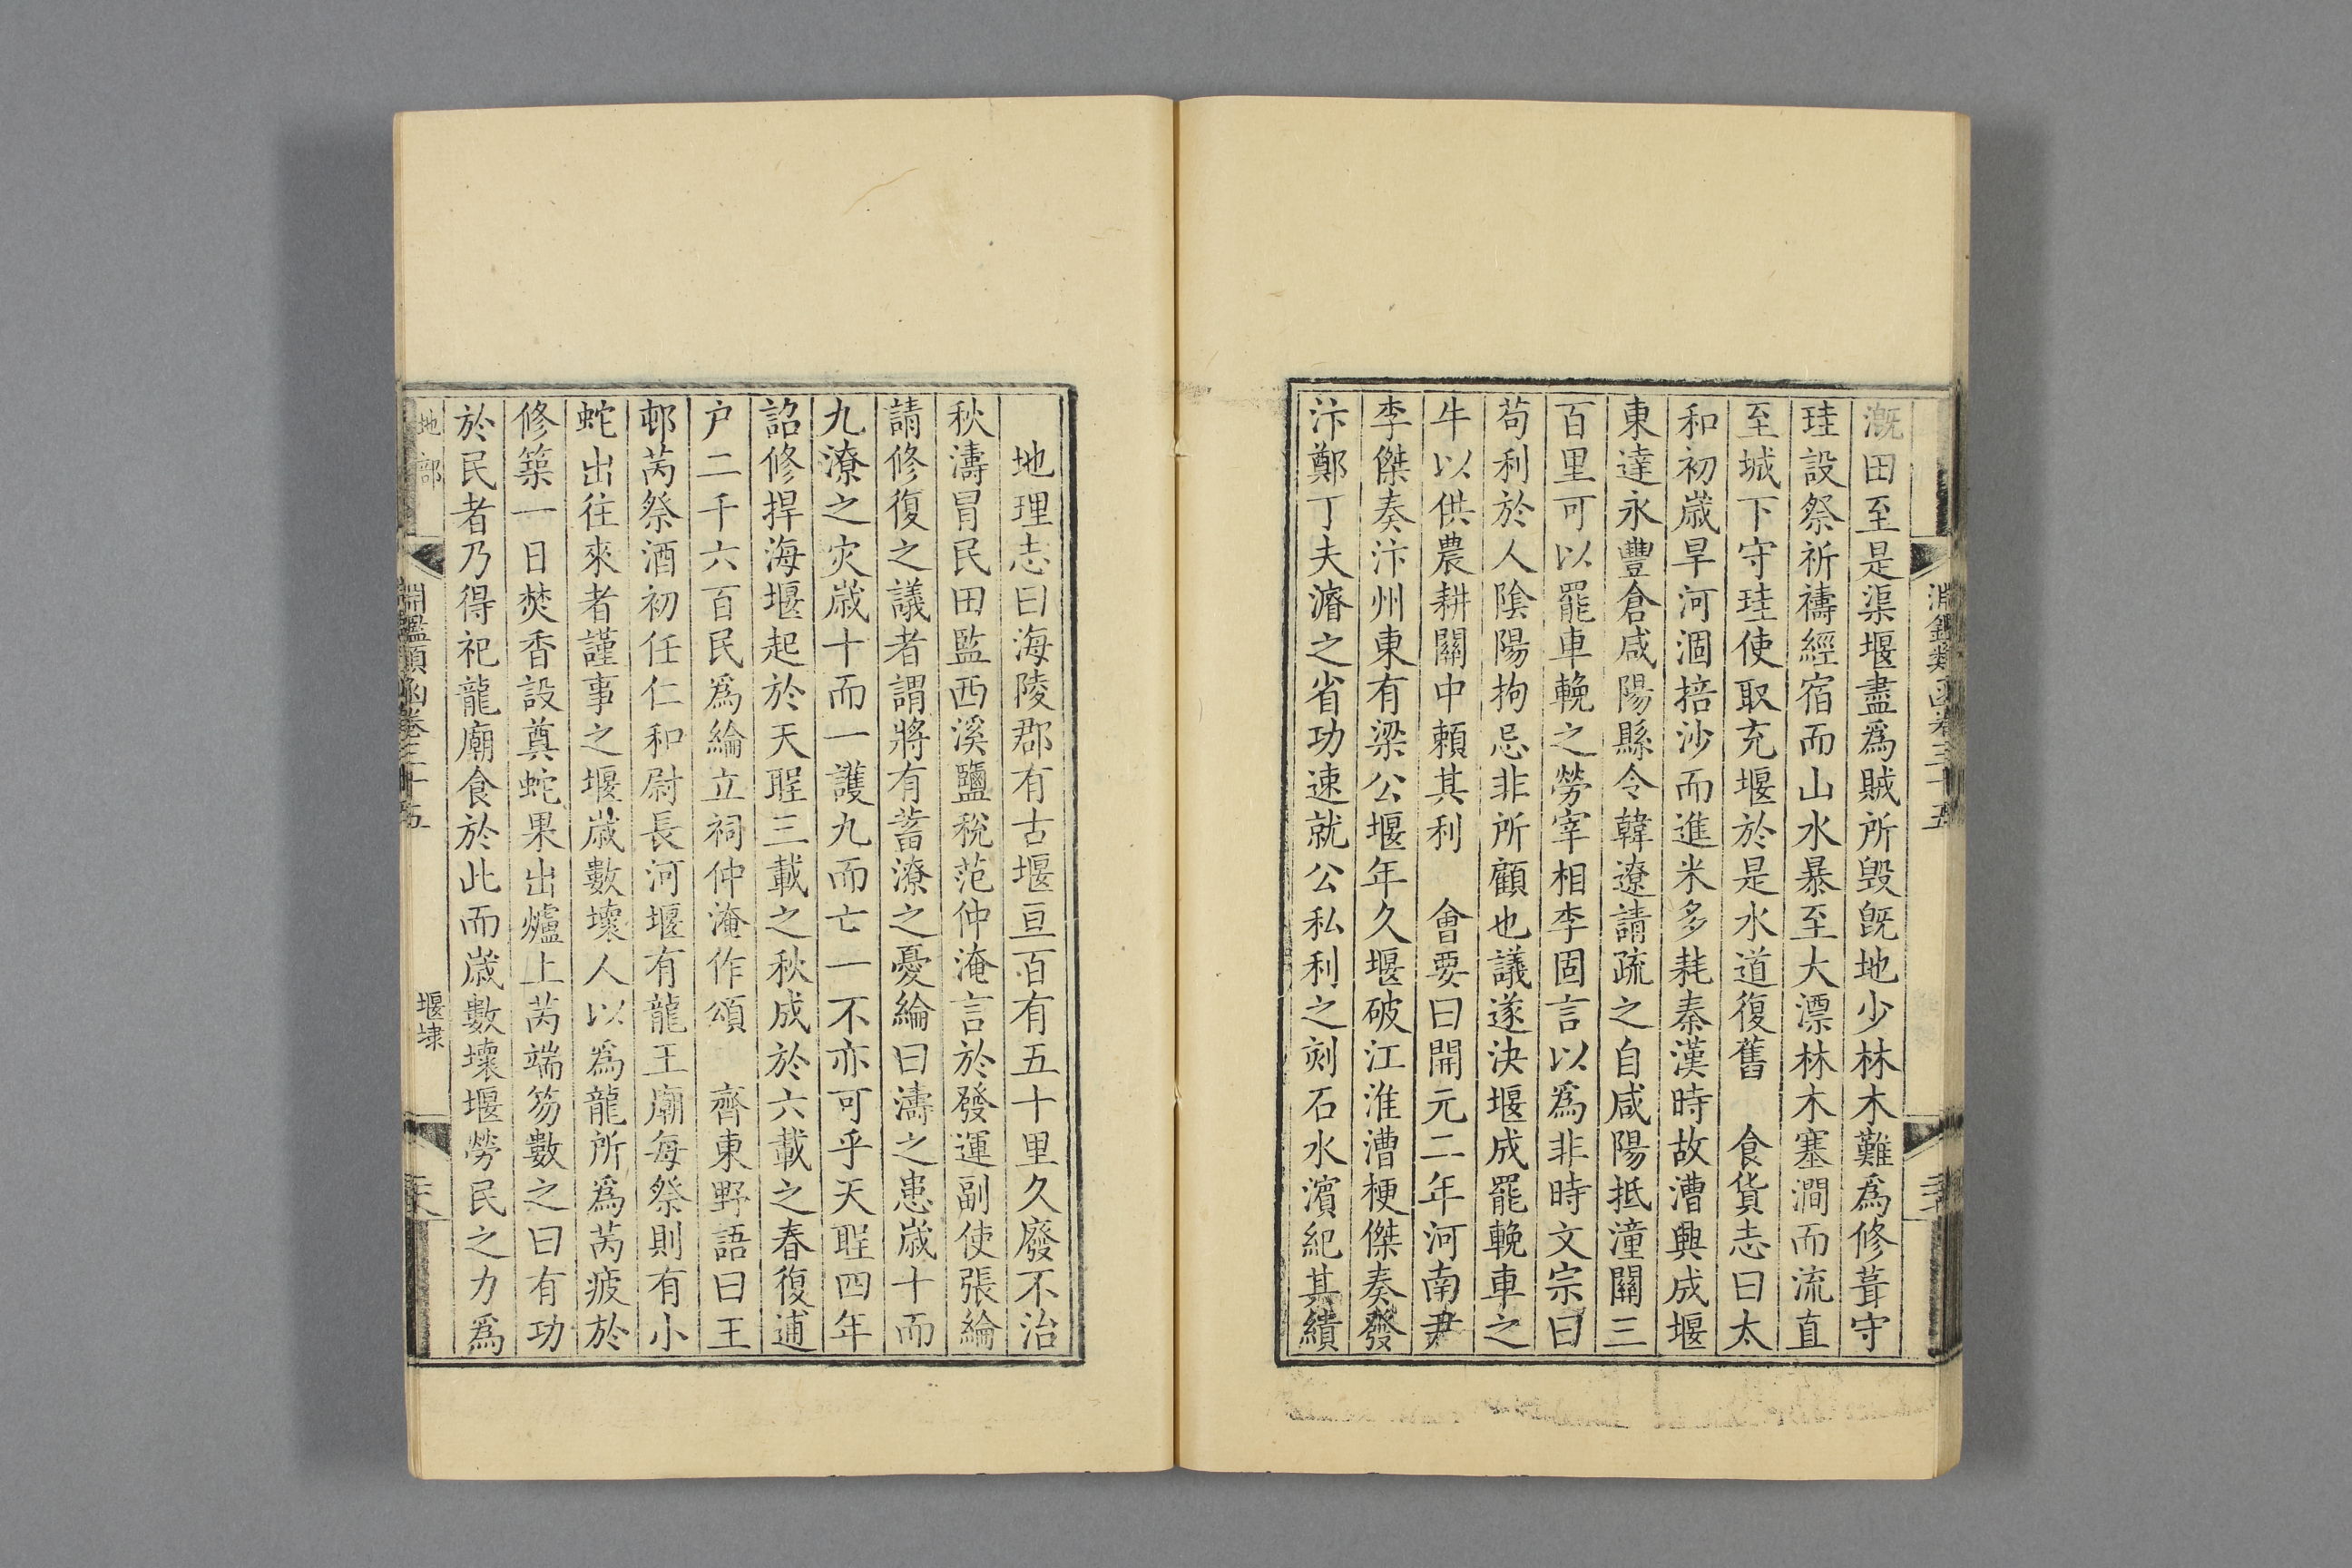 淵鑑類函卷三十五
漑田至是渠堰盡爲賊所毁旣地少林木難爲修葺守
珪設祭祈禱經宿而山水暴至大漂林木塞澗而流直
至城下守珪使取充堰於是水道復舊　食貨志曰太
和初歲旱河涸掊沙而進米多耗秦漢時故漕興成堰
東達永豐倉咸陽縣令韓遼請疏之自咸陽抵潼關三
百里可以罷車輓之勞宰相李固言以爲非時文宗曰
苟利於人陰陽拘忌非所顧也議遂決堰成罷輓車之
牛以供農耕關中賴其利　會要曰開元二年河南尹
李傑奏汴州東有梁公堰年久堰破江淮漕梗傑奏發
汴鄭丁夫濬之省功速就公私利之刻石水濱紀其績
地理志曰海陵郡有古堰亘百有五十里久廢不治
秋濤冒民田監西溪鹽稅范仲淹言於發運副使張綸
請修復之議者謂將有蓄潦之憂綸曰濤之患歲十而
九潦之灾歲十而一護九而亡一不亦可乎天聖四年
詔修捍海堰起於天聖三載之秋成於六載之春復逋
户二千六百民爲綸立祠仲淹作頌　齊東野語曰王
邨芮祭酒初任仁和尉長河堰有龍王廟每祭則有小
蛇出往來者謹事之堰歲數壞人以爲龍所爲芮疲於
修築一日焚香設奠蛇果出爐上芮端笏數之曰有功
於民者乃得祀龍廟食於此而歲數壞堰勞民之力爲
地部
淵鑑類函卷三十五
堰埭